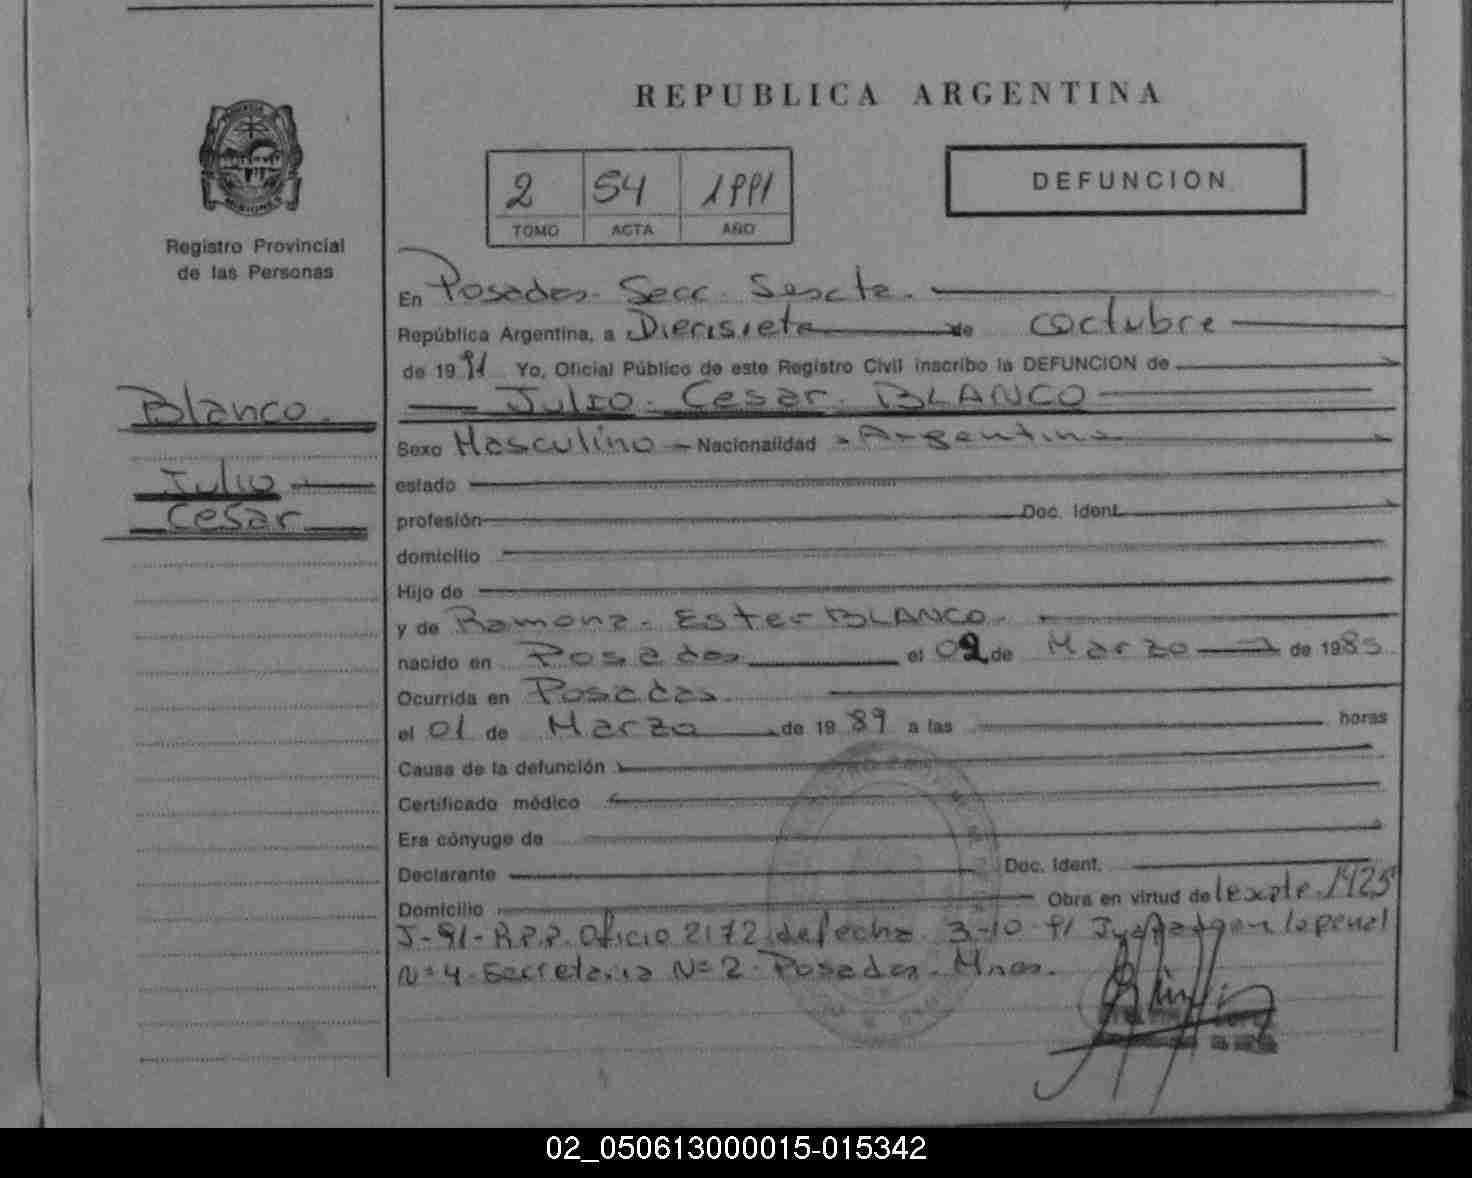 REPUBLICA ARGENTINA
MISIONES
Registro Provincial
de las Personas
2 54 1991
TOMO ACTA AÑO
DEFUNCION
En Posadas - Secc. Sexta. -
República Argentina, a Diecisiete de octubre
de 1991 Yo, Oficial Público de este Registro Civil inscribo la DEFUNCION de
Julio - Cesar - BLANCO
Blanco -
Julio
Cesar
Sexo Masculino - Nacionalidad - Argentina
estado
profesión Doc. Ident.
domicilio
Hijo de
y de Ramona - Ester BLANCO -
nacido en Posadas el 02 de Marzo de 1985
Ocurrida en Posadas
el 01 de Marzo de 1989 a las horas
Causa de la defunción
Certificado médico
Era cónyuge de
Declarante Doc. Ident.
Domicilio Obra en virtud del expte. 1425
J-91- R.P.P. Oficio 2172 de fecha 3-10-91 Juzgado en lo penal
Nº 4 - Secretaria Nº 2 - Posadas - Mnes.
02_050613000015-015342